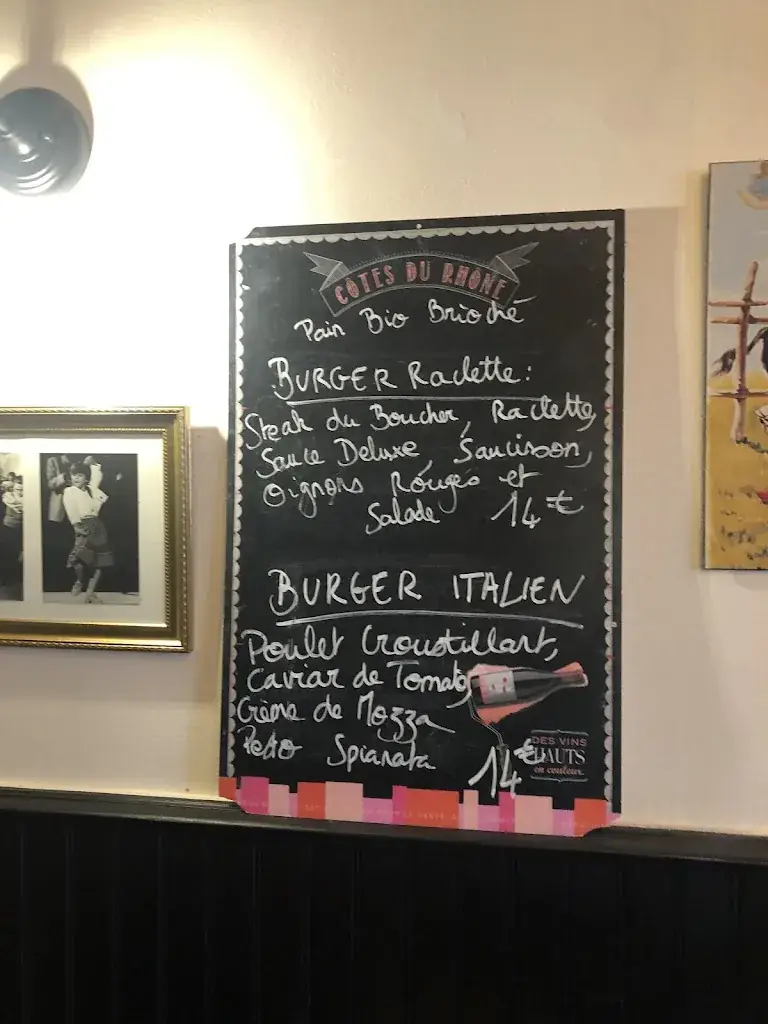 CÔTES DU RHÔNE
Pain Bio Brioché
BURGER Raclette:
Steak du Boucher, Raclette,
Sauce Deluxe, Saucisson,
Oignons Rouges et
Salade 14€
BURGER ITALIEN
Poulet Croustillant,
Caviar de Tomate
Crème de Mozza
Pesto Spianata
14€
DES VINS
HAUTS
en couleur.